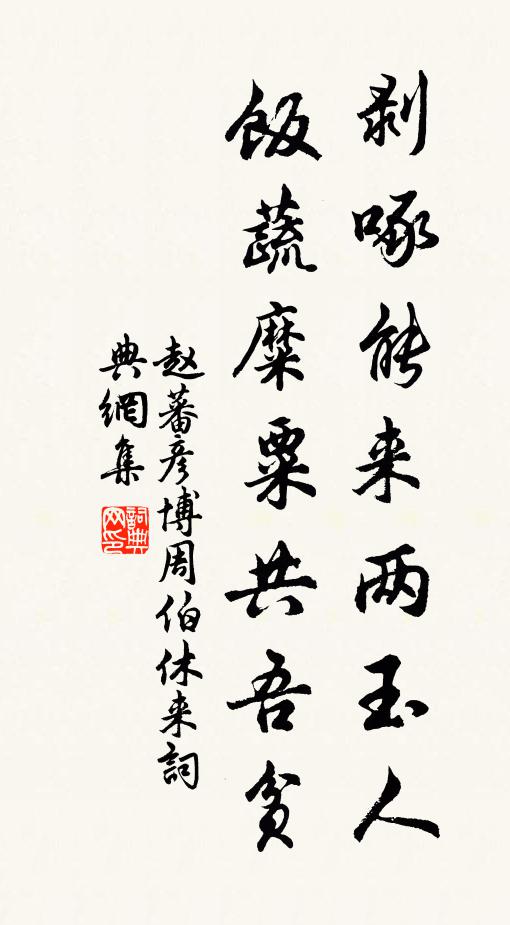 剥啄能来两玉人
飯蔬糜粟共吾貧
赵蕃彦博周伯休来詞
典網集
詞典网印